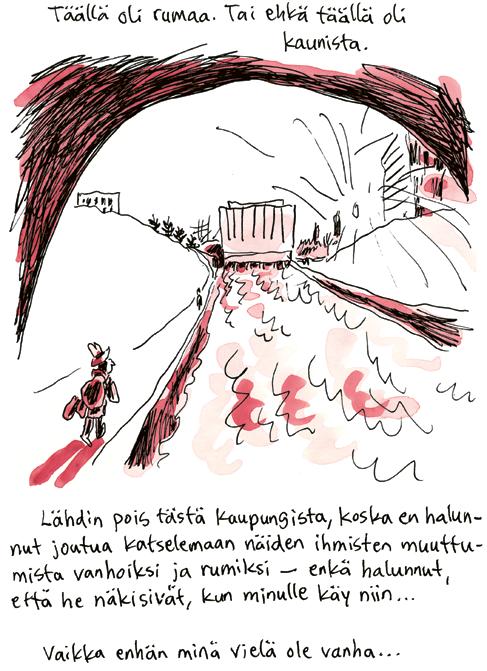 Täällä oli rumaa. Tai ehkä täällä oli
kaunista.
Lähdin pois tästä kaupungista, koska en halun-
nut joutua katselemaan näiden ihmisten muuttu-
mista vanhoiksi ja rumiksi – enkä halunnut,
että he näkisivät, kun minulle käy niin...
Vaikka enhän minä vielä ole vanha...